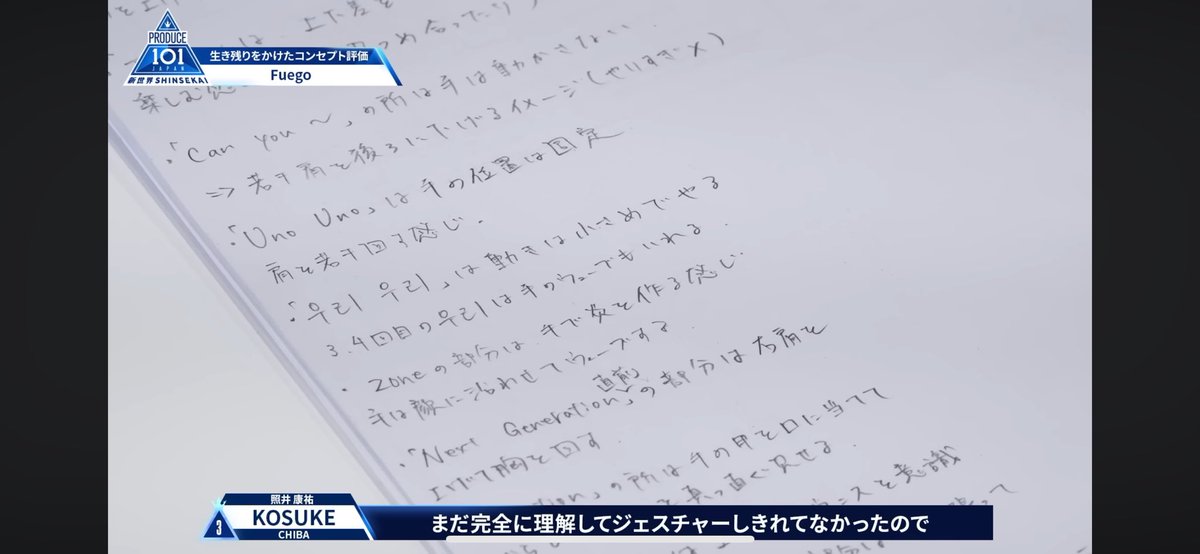 PRODUCE
101
JAPAN
新世界 SHINSEKAI
生き残りをかけたコンセプト評価
Fuego
楽しむ
・「Can you ～」の所は手は動かさない
⇒ 若干肩を後ろに下げるイメージ(やりすぎ×)
・「Uno Uno」は手の位置は固定
肩を若干回す感じ.
・「우리 우리」は動きは小さめでやる
3.4回目の우리は手のウェーブもいれる.
・ zoneの部分は、手で炎を作る感じ.
手は顔に沿わせてウェーブする.
直前
・「Next Generation」の部分は右肩を
上げて胸を回す.
の所は手の甲を口に当てて
真っ直ぐ見せる.
を意識
照井 康祐
3
KOSUKE
CHIBA
まだ完全に理解してジェスチャーしきれてなかったので